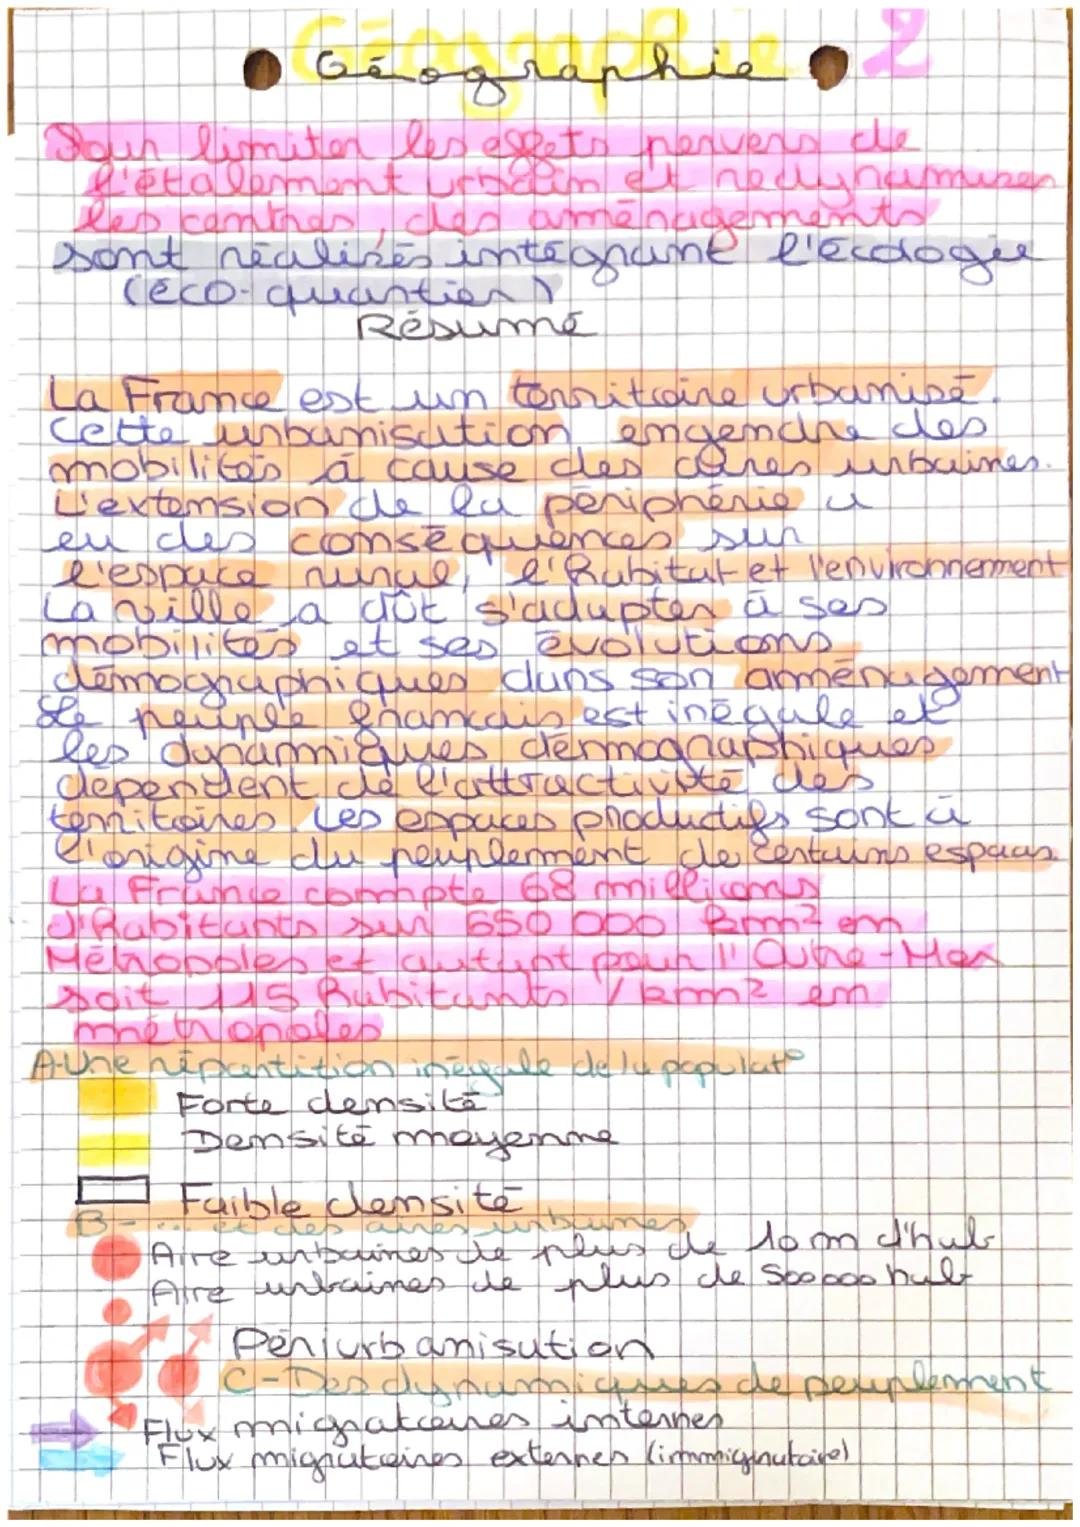 Géographie 2
Géographie
Pour limiter les effets pervers de
l'étalement urbain et redynamiser
les centres, des aménagements
sont réalisés intégrant l'écologie
(éco-quartier)
Résumé
La France est un territoire urbanisé.
Cette urbanisation engendre des
mobilités à cause des aires urbaines.
L'extension de la périphérie a
eu des conséquences sur
l'espace rural, l'habitat et l'environnement
La ville a dût s'adapter à ses
mobilités et ses évolutions
démographiques dans son aménagement
Le peuple français est inégale et
les dynamiques démographiques
dependent de l'attractivité des
territoires. Les espaces productifs sont à
l'origine du peuplement de certains espaces.
La France compte 68 millions
d'habitants sur 550 000 km² en
Métropoles et autant pour l'Outre-Mer
soit 115 habitants /km² en
métropoles
A-Une répartition inégale de la populat°
Forte densité
Densité moyenne
Faible densité
B-... et des aires urbaines
Aire urbaines de plus de 10m d'hab
Aire urbaines de plus de 500000 hab
Périurbanisation
C-Des dynamiques de peuplement
Flux migratoires internes
Flux migratoires externes (immigratoire)